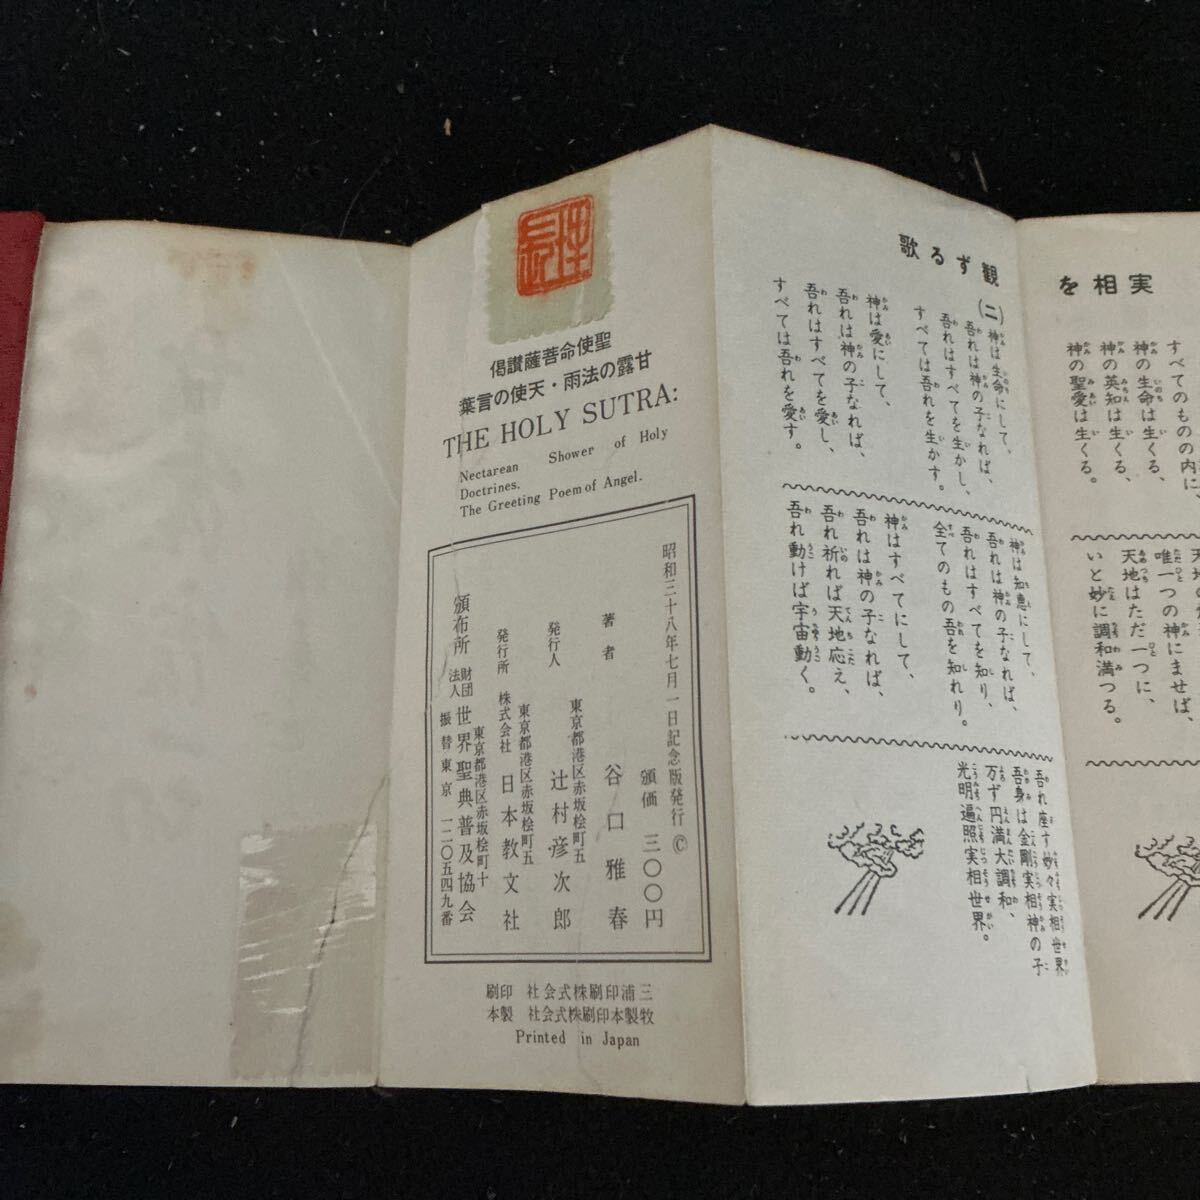 実相を
すべてのものの内に
神の生命は生くる、
神の英知は生くる、
神の聖愛は生くる。
唯一つの神にませば、
天地はただ一つに、
いと妙に調和満つる。
観ずる歌
(二)
神は生命にして、
吾れは神の子なれば、
吾れはすべてを生かし、
すべては吾れを生かす。
神は愛にして、
吾れは神の子なれば、
吾れはすべてを愛し、
すべては吾れを愛す。
神は知恵にして、
吾れは神の子なれば、
吾れはすべてを知り、
全てのもの吾を知れり。
神はすべてにして、
吾れは神の子なれば、
吾れ祈れば天地応え、
吾れ動けば宇宙動く。
吾れ座す妙々実相世界
吾身は金剛実相神の子
万ず円満大調和、
光明遍照実相世界。
聖使命菩薩讃偈
甘露の法雨・天使の言葉
THE HOLY SUTRA:
Nectarean Shower of Holy
Doctrines.
The Greeting Poem of Angel.
昭和三十八年七月一日記念版発行 ©
頒価 三〇〇円
著者 谷口雅春
東京都港区赤坂桧町五
発行人 辻村彦次郎
東京都港区赤坂桧町五
発行所 株式会社 日本教文社
東京都港区赤坂桧町十
頒布所 財団法人 世界聖典普及協会
振替東京 一二〇五四九番
三浦印刷株式会社 印刷
牧製本印刷株式会社 製本
Printed in Japan